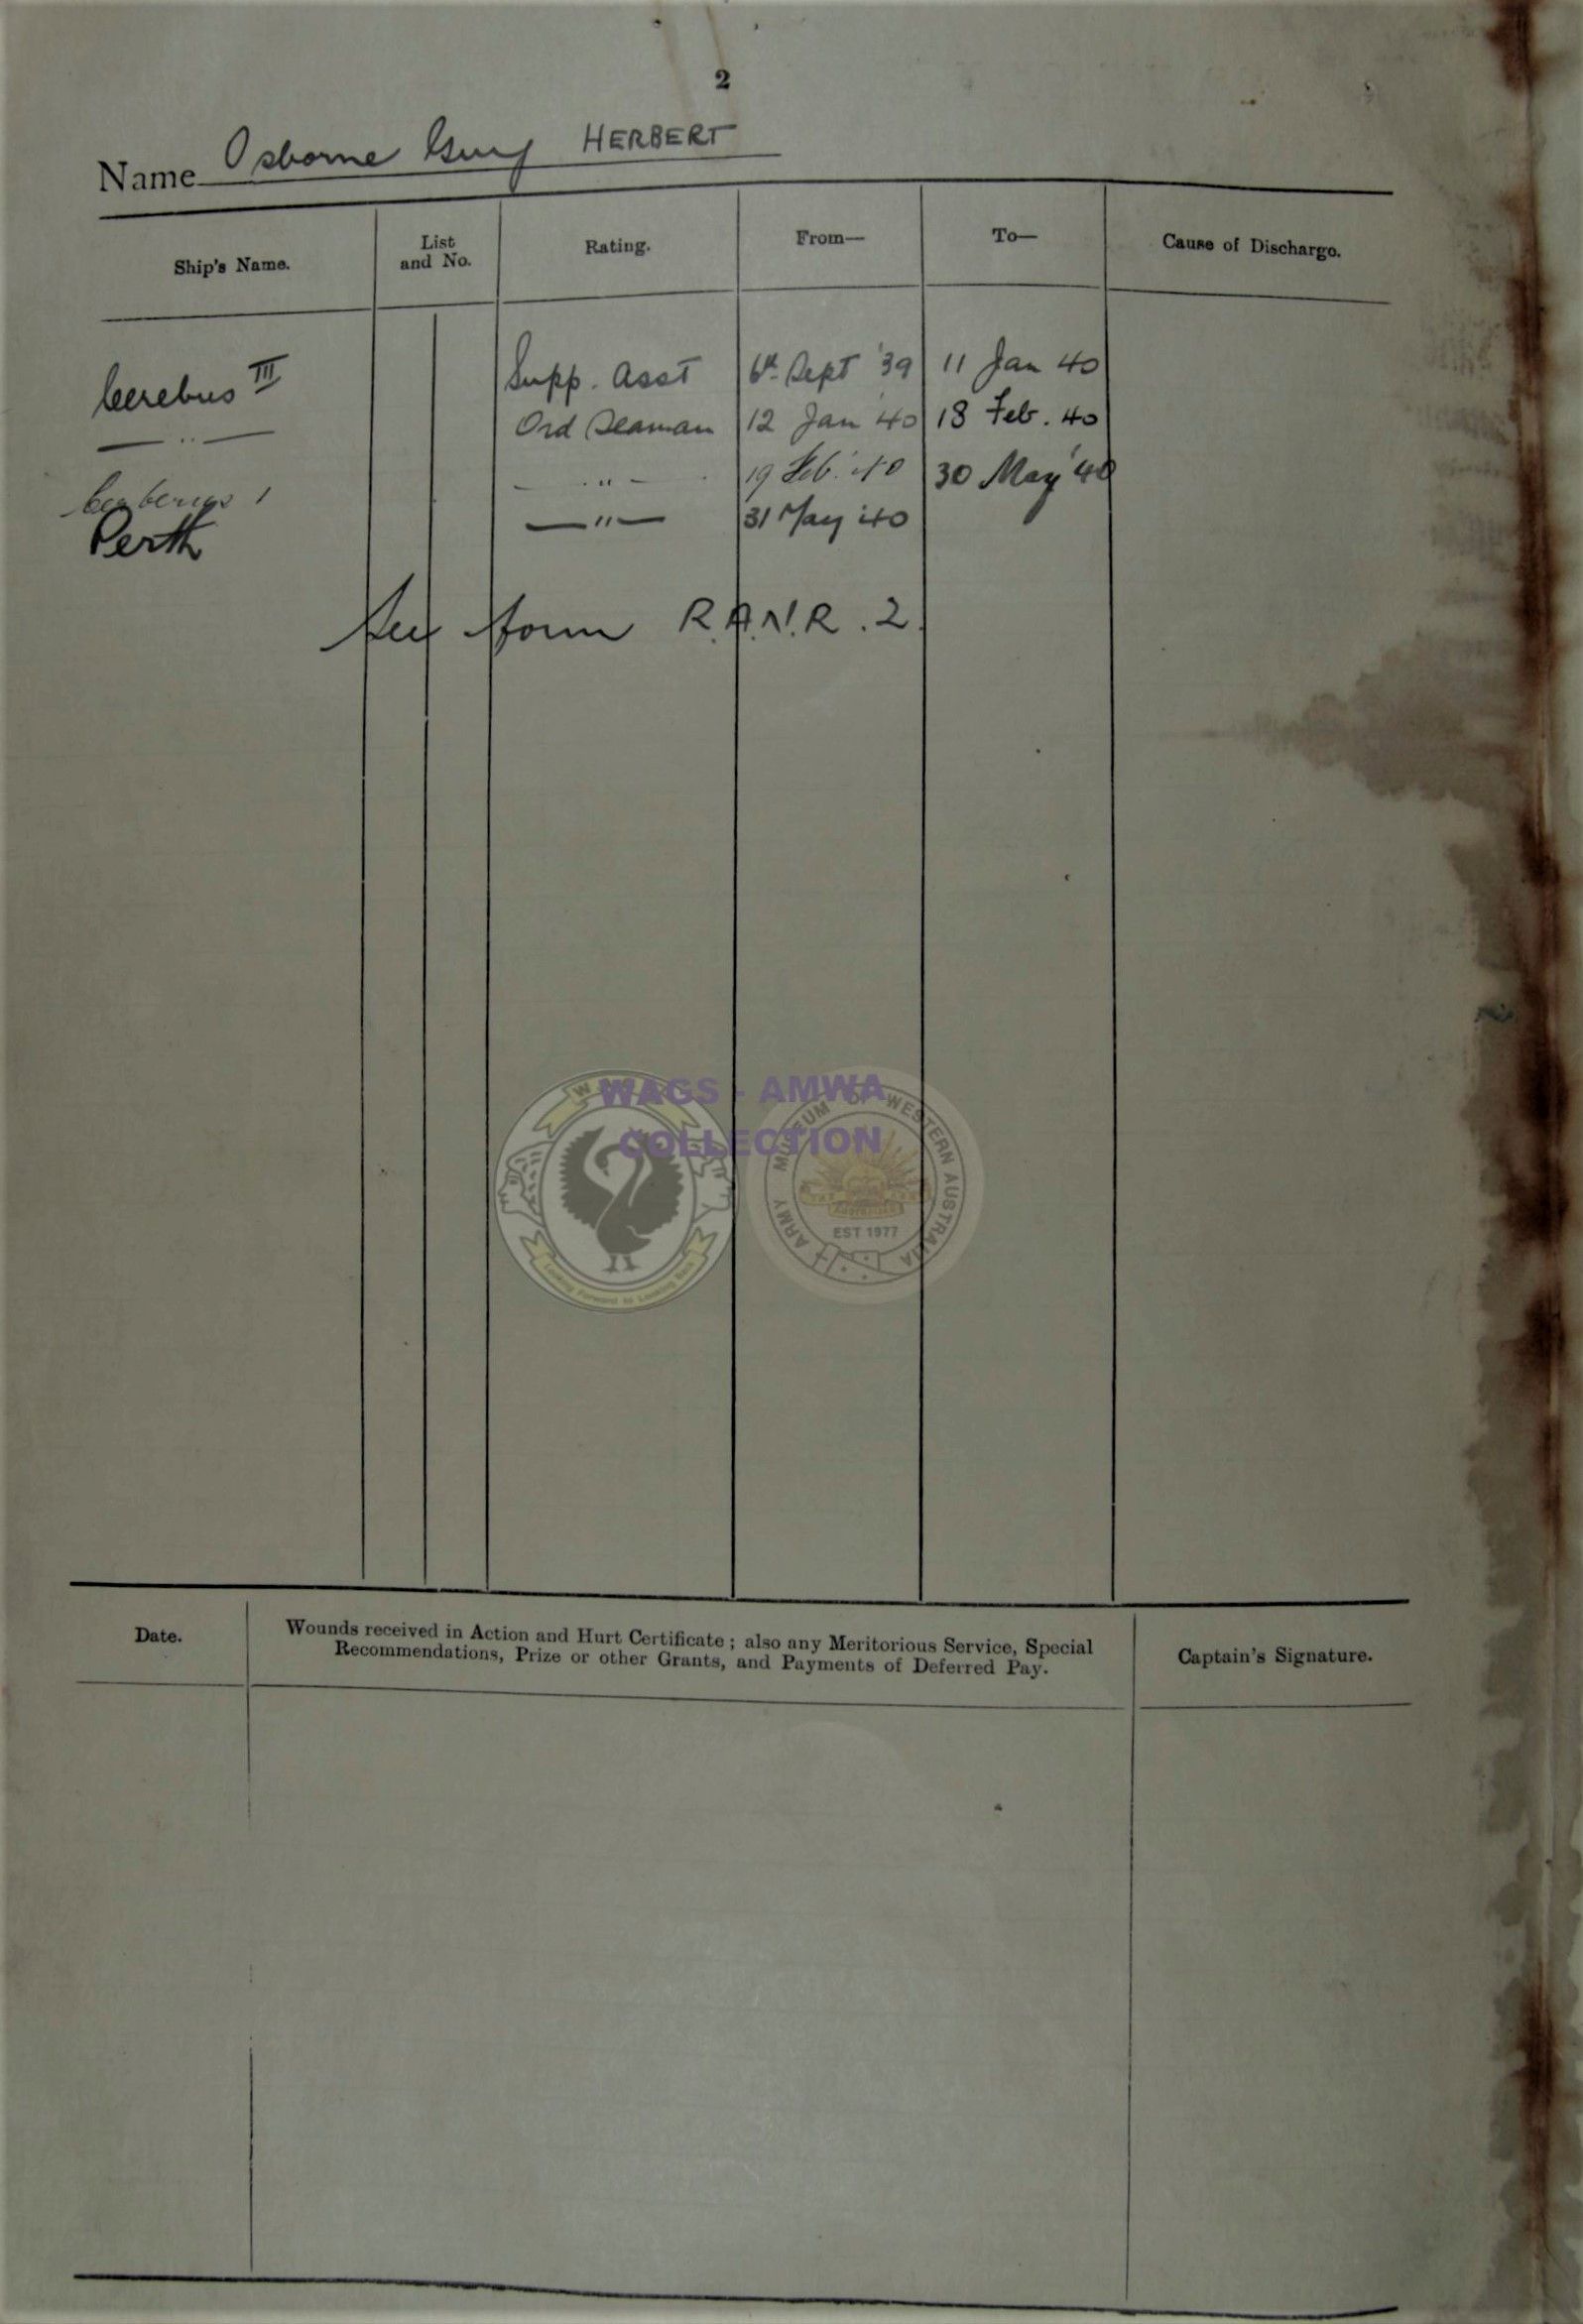 2
Name Osborne Guy HERBERT
Ship's Name. List and No. Rating. From— To— Cause of Discharge.
Cerebus III Supp. Asst 6th Sept '39 11 Jan 40
— " — Ord Seaman 12 Jan '40 18 Feb. 40
Cerberus 1 — " — 19 Feb. '40 30 May '40
Perth — " — 31 May '40
See form R.A.N.R. 2.
WAGS - AMWA
COLLECTION
ARMY MUSEUM OF WESTERN AUSTRALIA
EST 1977
Looking Forward to Looking Back
Date. Wounds received in Action and Hurt Certificate; also any Meritorious Service, Special Captain's Signature.
Recommendations, Prize or other Grants, and Payments of Deferred Pay.